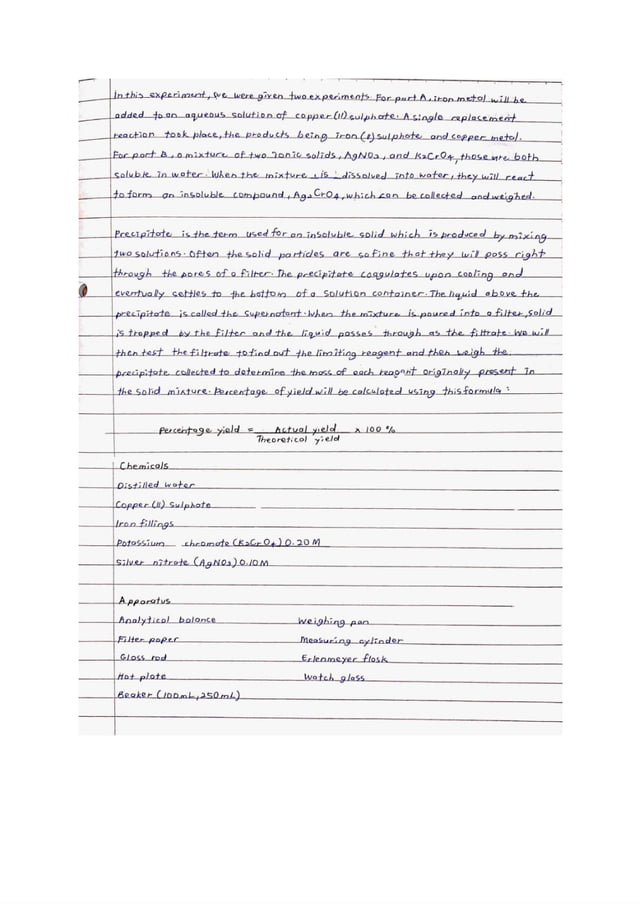 In this experiment, we were given two experiments. For part A, iron metal will be
added to an aqueous solution of copper (II) sulphate. A single replacement
reaction took place, the products being Iron (I) sulphate and copper metal.
For part B, a mixture of two ionic solids, AgNO3, and K2CrO4, those are both
soluble in water. When the mixture is dissolved into water, they will react
to form an insoluble compound, Ag2CrO4, which can be collected and weighed.
Precipitate is the term used for an insoluble solid which is produced by mixing
two solutions. Often the solid particles are so fine that they will pass right
through the pores of a filter. The precipitate coagulates upon cooling and
eventually settles to the bottom of a solution container. The liquid above the
precipitate is called the supernatant. When the mixture is poured into a filter, solid
is trapped by the filter and the liquid passes through as the filtrate. We will
then test the filtrate to find out the limiting reagent and then weigh the
precipitate collected to determine the mass of each reagant originally present in
the solid mixture. Percentage of yield will be calculated using this formula:
Percentage yield = Actual yield / Theoretical yield x 100 %
Chemicals
Distilled water
Copper (II) Sulphate
Iron fillings
Potassium chromate (K2CrO4) 0.20M
Silver nitrate (AgNO3) 0.10M
Apparatus
Analytical balance Weighing pan
Filter paper Measuring cylinder
Glass rod Erlenmeyer flask
Hot plate Watch glass
Beaker (100mL, 250mL)